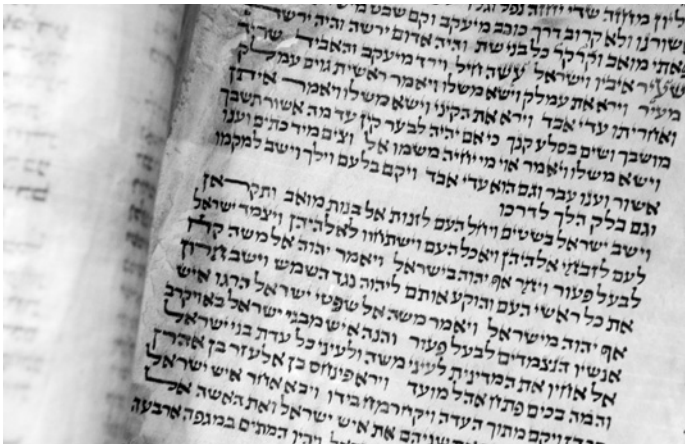 מחזה שדי יחזה נפל
אשורנו ולא קרוב דרך כוכב מיעקב וקם שבט
פאתי מואב וקרקר כל בני שת והיה אדום ירשה והיה ירשה
שעיר איביו וישראל עשה חיל וירד מיעקב והאביד שריד
מעיר וירא את עמלק וישא משלו ויאמר ראשית גוים עמלק
ואחריתו עדי אבד וירא את הקיני וישא משלו ויאמר איתן
מושבך ושים בסלע קנך כי אם יהיה לבער קין עד מה אשור תשבך
וישא משלו ויאמר אוי מי יחיה משמו אל וצים מיד כתים וענו
אשור וענו עבר וגם הוא עדי אבד ויקם בלעם וילך וישב למקמו
וגם בלק הלך לדרכו
וישב ישראל בשטים ויחל העם לזנות אל בנות מואב ותקראן
לעם לזבחי אלהיהן ויאכל העם וישתחוו לאלהיהן ויצמד ישראל
לבעל פעור ויחר אף יהוה בישראל ויאמר יהוה אל משה קח
את כל ראשי העם והוקע אותם ליהוה נגד השמש וישב חרון
אף יהוה מישראל ויאמר משה אל שפטי ישראל הרגו איש
אנשיו הנצמדים לבעל פעור והנה איש מבני ישראל בא ויקרב
אל אחיו את המדינית לעיני משה ולעיני כל עדת בני ישראל
והמה בכים פתח אהל מועד וירא פינחס בן אלעזר בן אהרן
ויקם מתוך העדה ויקח רמח בידו ויבא אחר איש ישראל
שניהם את איש ישראל ואת האשה אל
ויהיו המתים במגפה ארבעה